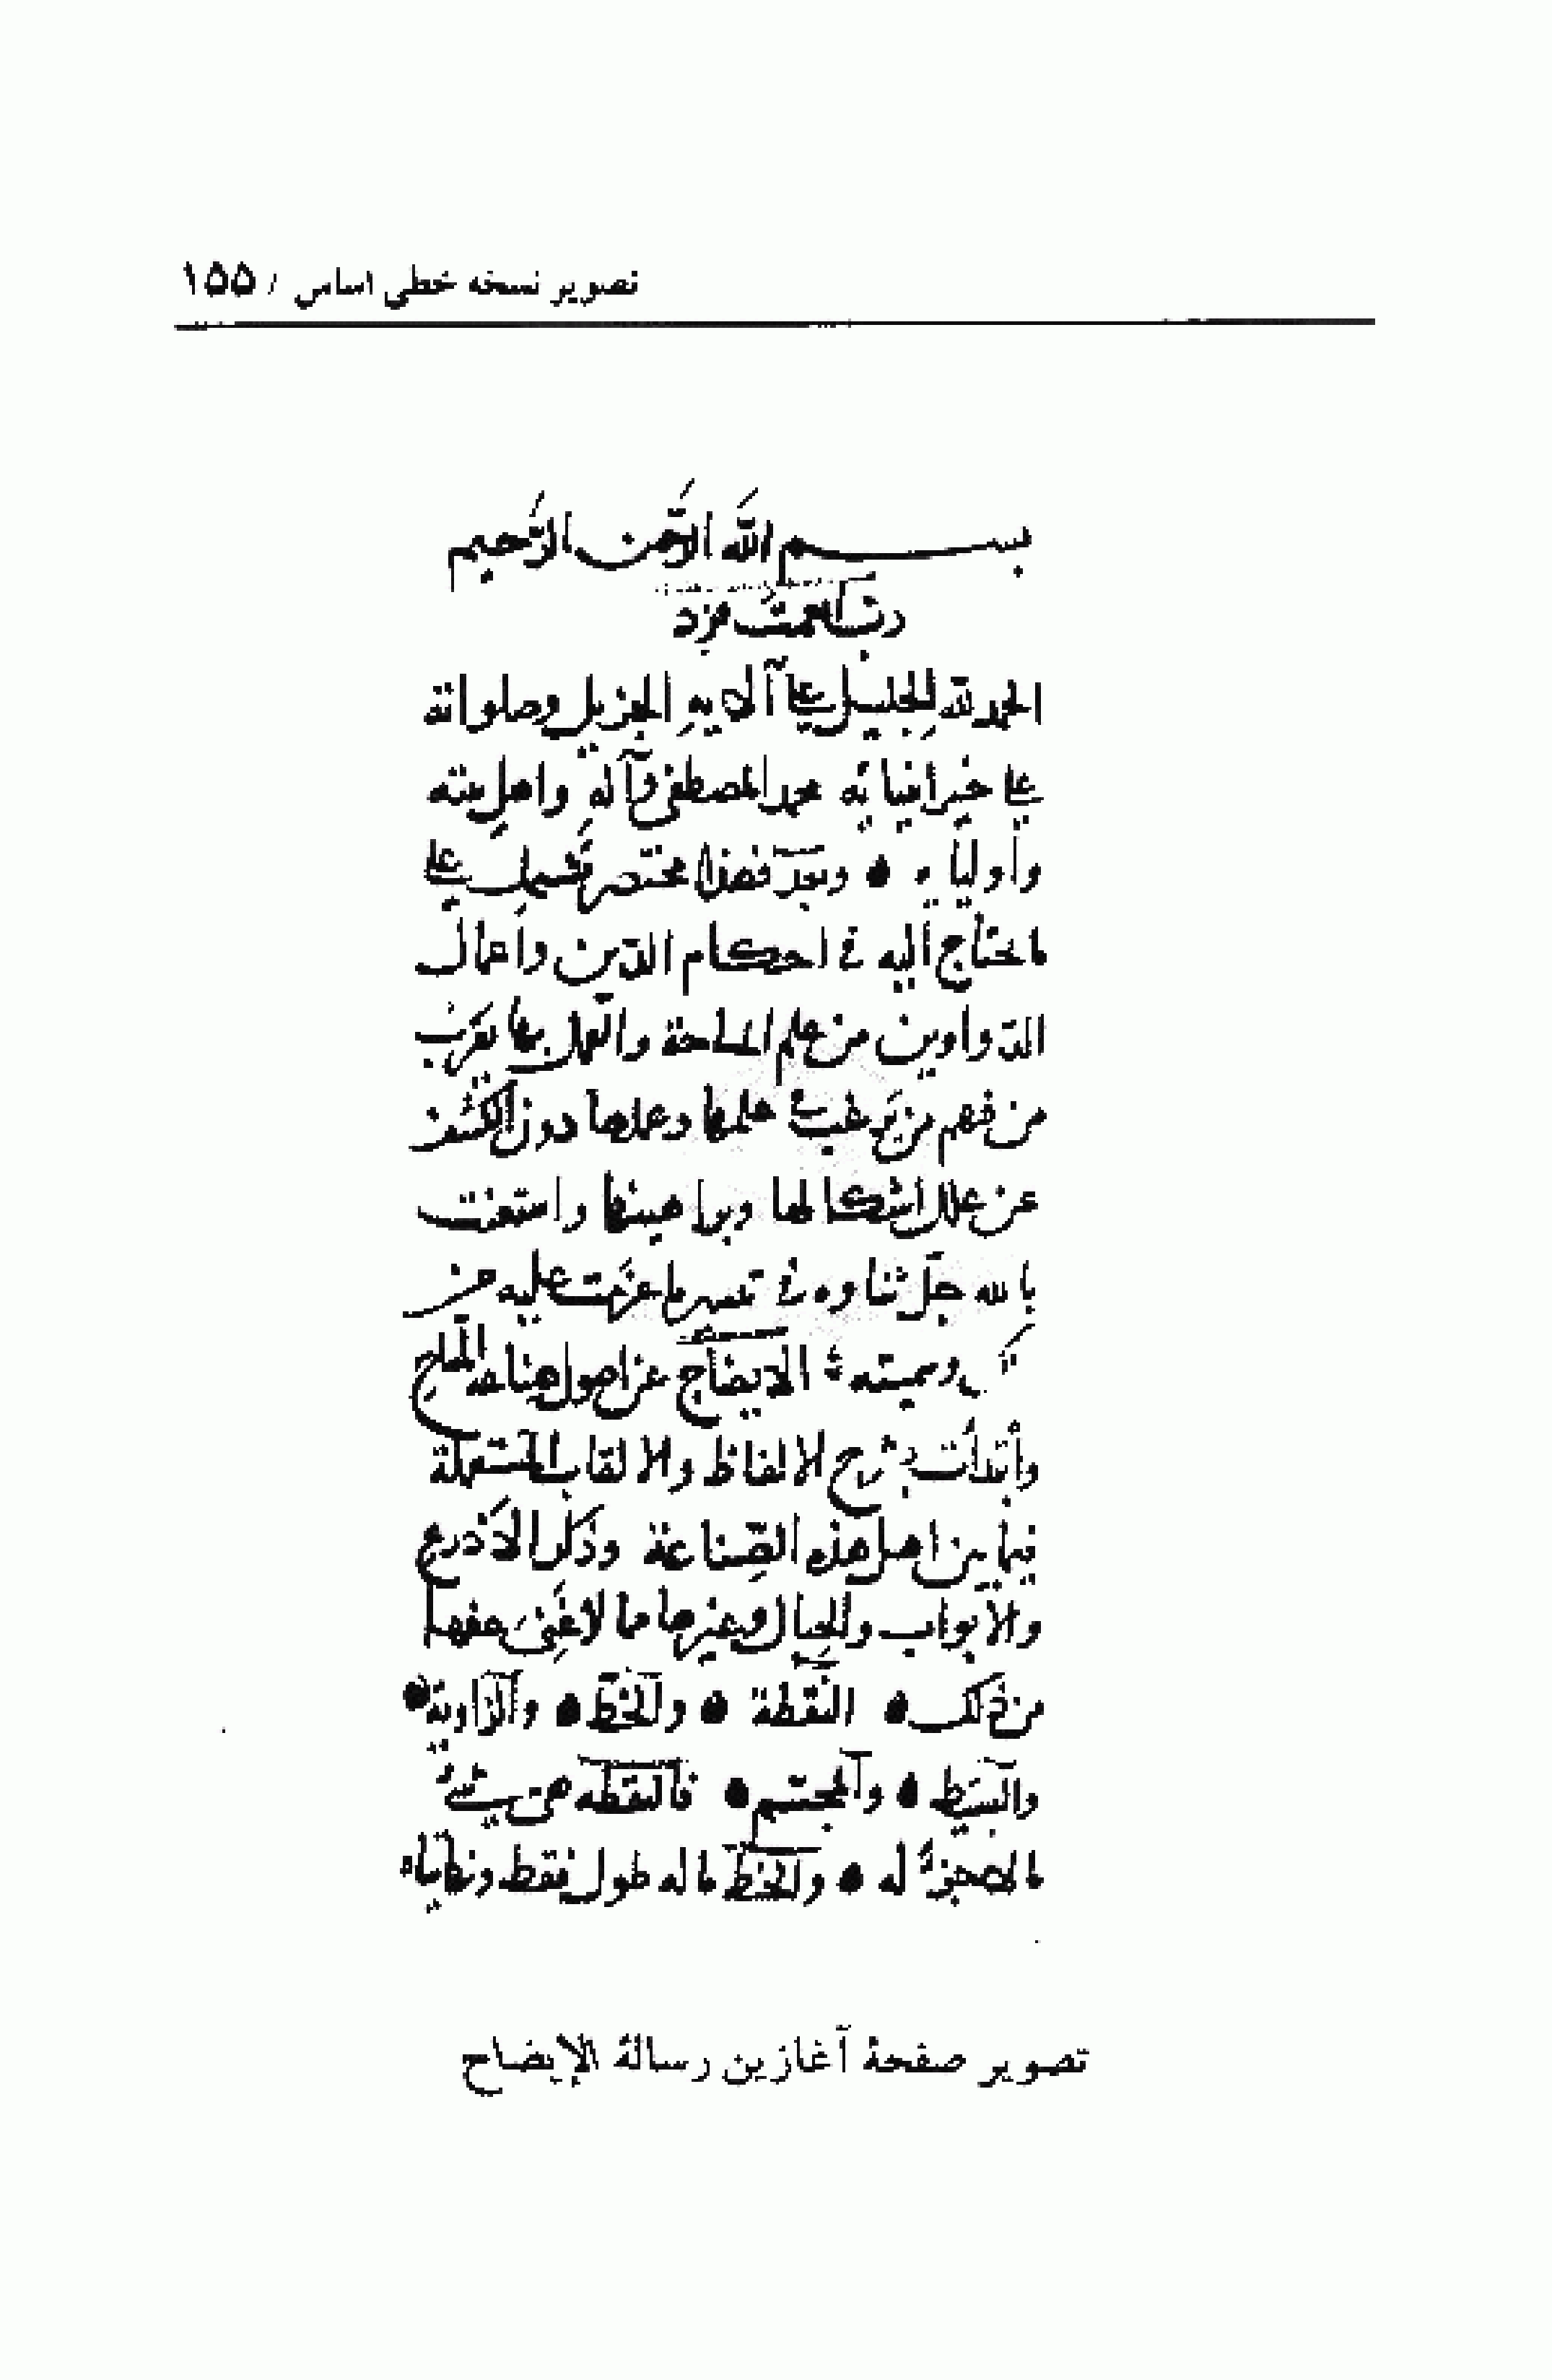 تصویر نسخه خطی اساس / ۱۵۵
بسم الله الرَّحمن الرَّحيم
ربّ كما انعمت فزد
الحمد لله الجليل على آلائه الجزيل وصلواته
على خير أنبيائه محمد المصطفى وآله واهل بيته
وأوليائه • وبعد فهذا مختصر يشتمل على
ما يحتاج اليه في احكام الدّين واعمال
الدّواوين من علم المساحة والعمل بها يقرب
من فهم من يرغب في علمها وعملها دون الكشف
عن علل اشكالها وبراهينها واستعنت
بالله جلّ ثناوه في تيسير ما عزمت عليه من
ذلك وسميته الايضاح عن اصول صناعة المسّاح
وأبتدأت بشرح الالفاظ والالقاب المستعملة
فيما بين اهل هذه الصّناعة وذكر الاذرع
والابواب والحبال وغيرها مما لا غنى عنه فيها
من ذلك • النّقطة • والخطّ • والزّاوية •
والبسيط • والمجسّم • فالنقطة هي شئ
ما لا جزءَ له • والخطّ ما له طول فقط ونهايتاه
تصویر صفحۀ آغازین رسالۀ الإیضاح